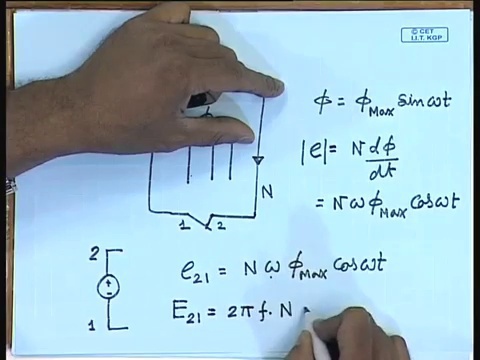 © CET
I.I.T. KGP
φ = φ_Max sinωt
|e| = N dφ/dt
= Nω φ_Max cosωt
N
1 2
2
e₂₁ = N ω φ_Max cosωt
1
E₂₁ = 2π f. N